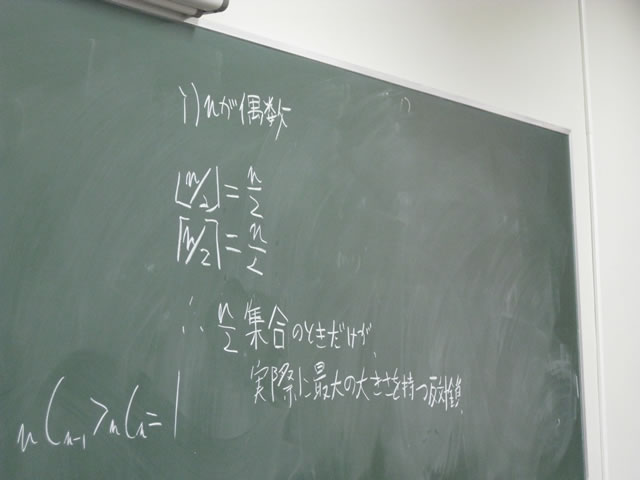 i) nが偶数
⌊n/2⌋ = n/2
⌈n/2⌉ = n/2
∴ n/2 集合のときだけが、
実際に最大の大きさを持つ反対鎖
nCn-1 > nCn = 1